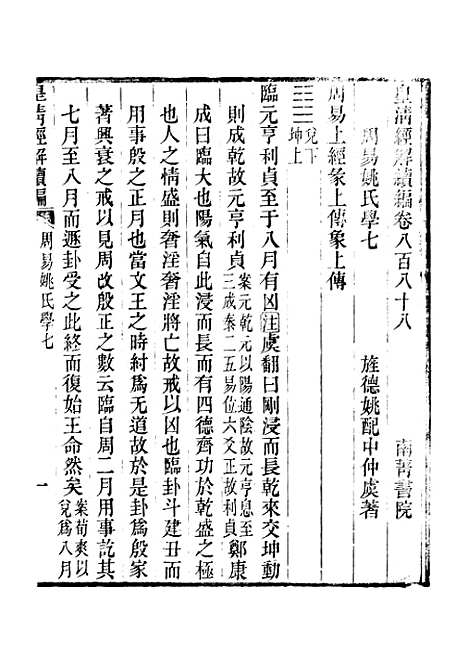 皇清經解續編卷八百八十八　南菁書院
周易姚氏學七　旌德姚配中仲虞著
周易上經彖上傳象上傳
兌下
坤上
臨元亨利貞至于八月有凶注虞翻曰剛浸而長乾來交坤動
則成乾故元亨利貞案元乾元以陽通陰元亨息至三成泰二五易位六爻正故元亨利貞鄭康
成曰臨大也陽氣自此浸而長而有四德齊功於乾盛之極
也人之情盛則奢淫奢淫將亡故戒以凶也臨卦斗建丑而
用事殷之正月也當文王之時紂爲无道故於是卦爲殷家
著興衰之戒以見周改殷正之數云臨自周二月用事訖其
七月至八月而遯卦受之此終而復始王命然矣案荀爽以兌爲八月
皇清經解續編　周易姚氏學七　一